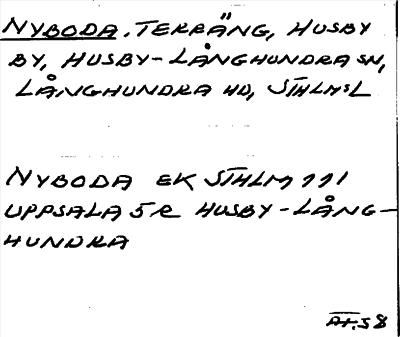 NYBODA. TERRÄNG, HUSBY
BY, HUSBY-LÅNGHUNDRA SN,
LÅNGHUNDRA HD, STHLMSL
NYBODA EK STHLM 111
UPPSALA 5R HUSBY-LÅNG-
HUNDRA